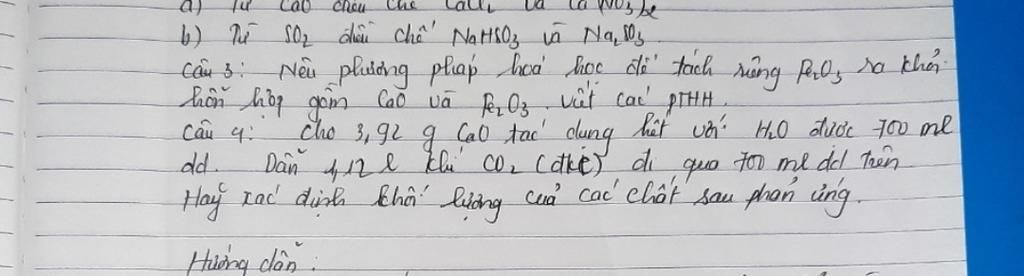 a) Từ CaO điều chế CaCl2 và Ca(NO3)2
b) Từ SO2 điều chế NaHSO3 và Na2SO3
Câu 3: Nêu phương pháp hoá học để tách riêng Fe2O3 ra khỏi
hỗn hợp gồm CaO và Fe2O3. viết các PTHH.
Câu 4: Cho 3,92 g CaO tác dụng hết với H2O được 700 ml
dd. Dẫn 1,12 l khí CO2 (đktc) đi qua 700 ml dd trên
Hãy xác định khối lượng của các chất sau phản ứng.
Hướng dẫn: